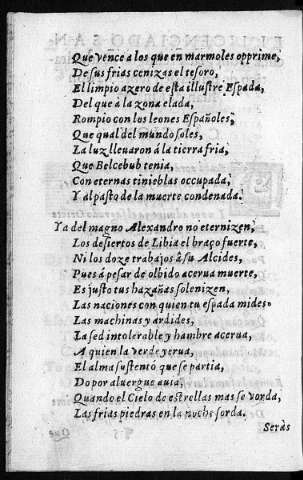 Que vence a los que en marmoles opprime,
De sus frias cenizas el tesoro,
El limpio azero de esta illustre Espada,
Del que à la zona elada,
Rompio con los leones Españoles,
Que qual del mundo soles,
La luz lleuaron à la tierra fria,
Que Belcebub tenia,
Con eternas tinieblas occupada,
Y al pasto de la muerte condenada.
Ya del magno Alexandro no eternizen,
Los desiertos de Libia el braço fuerte,
Ni los doze trabajos â su Alcides,
Pues à pesar de olbido acerua muerte,
Es justo tus hazañas solenizen,
Las naciones con quien tu espada mides
Las machinas y ardides,
La sed intolerable y hambre acerua,
A quien la verde yerua,
El alma sustentò que se partia,
Do por aluergue auia,
Quando el Cielo de estrellas mas se borda,
Las frias piedras en la noche sorda.
Seràs